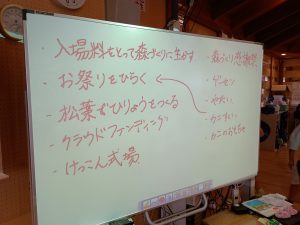 ・入場料をとって森づくりに生かす
・お祭りをひらく
・松葉でひりょうをつくる
・クラウドファンディング
・けっこん式場
・森づくり感謝祭
・ゲーセン
・やたい
・カニすくい